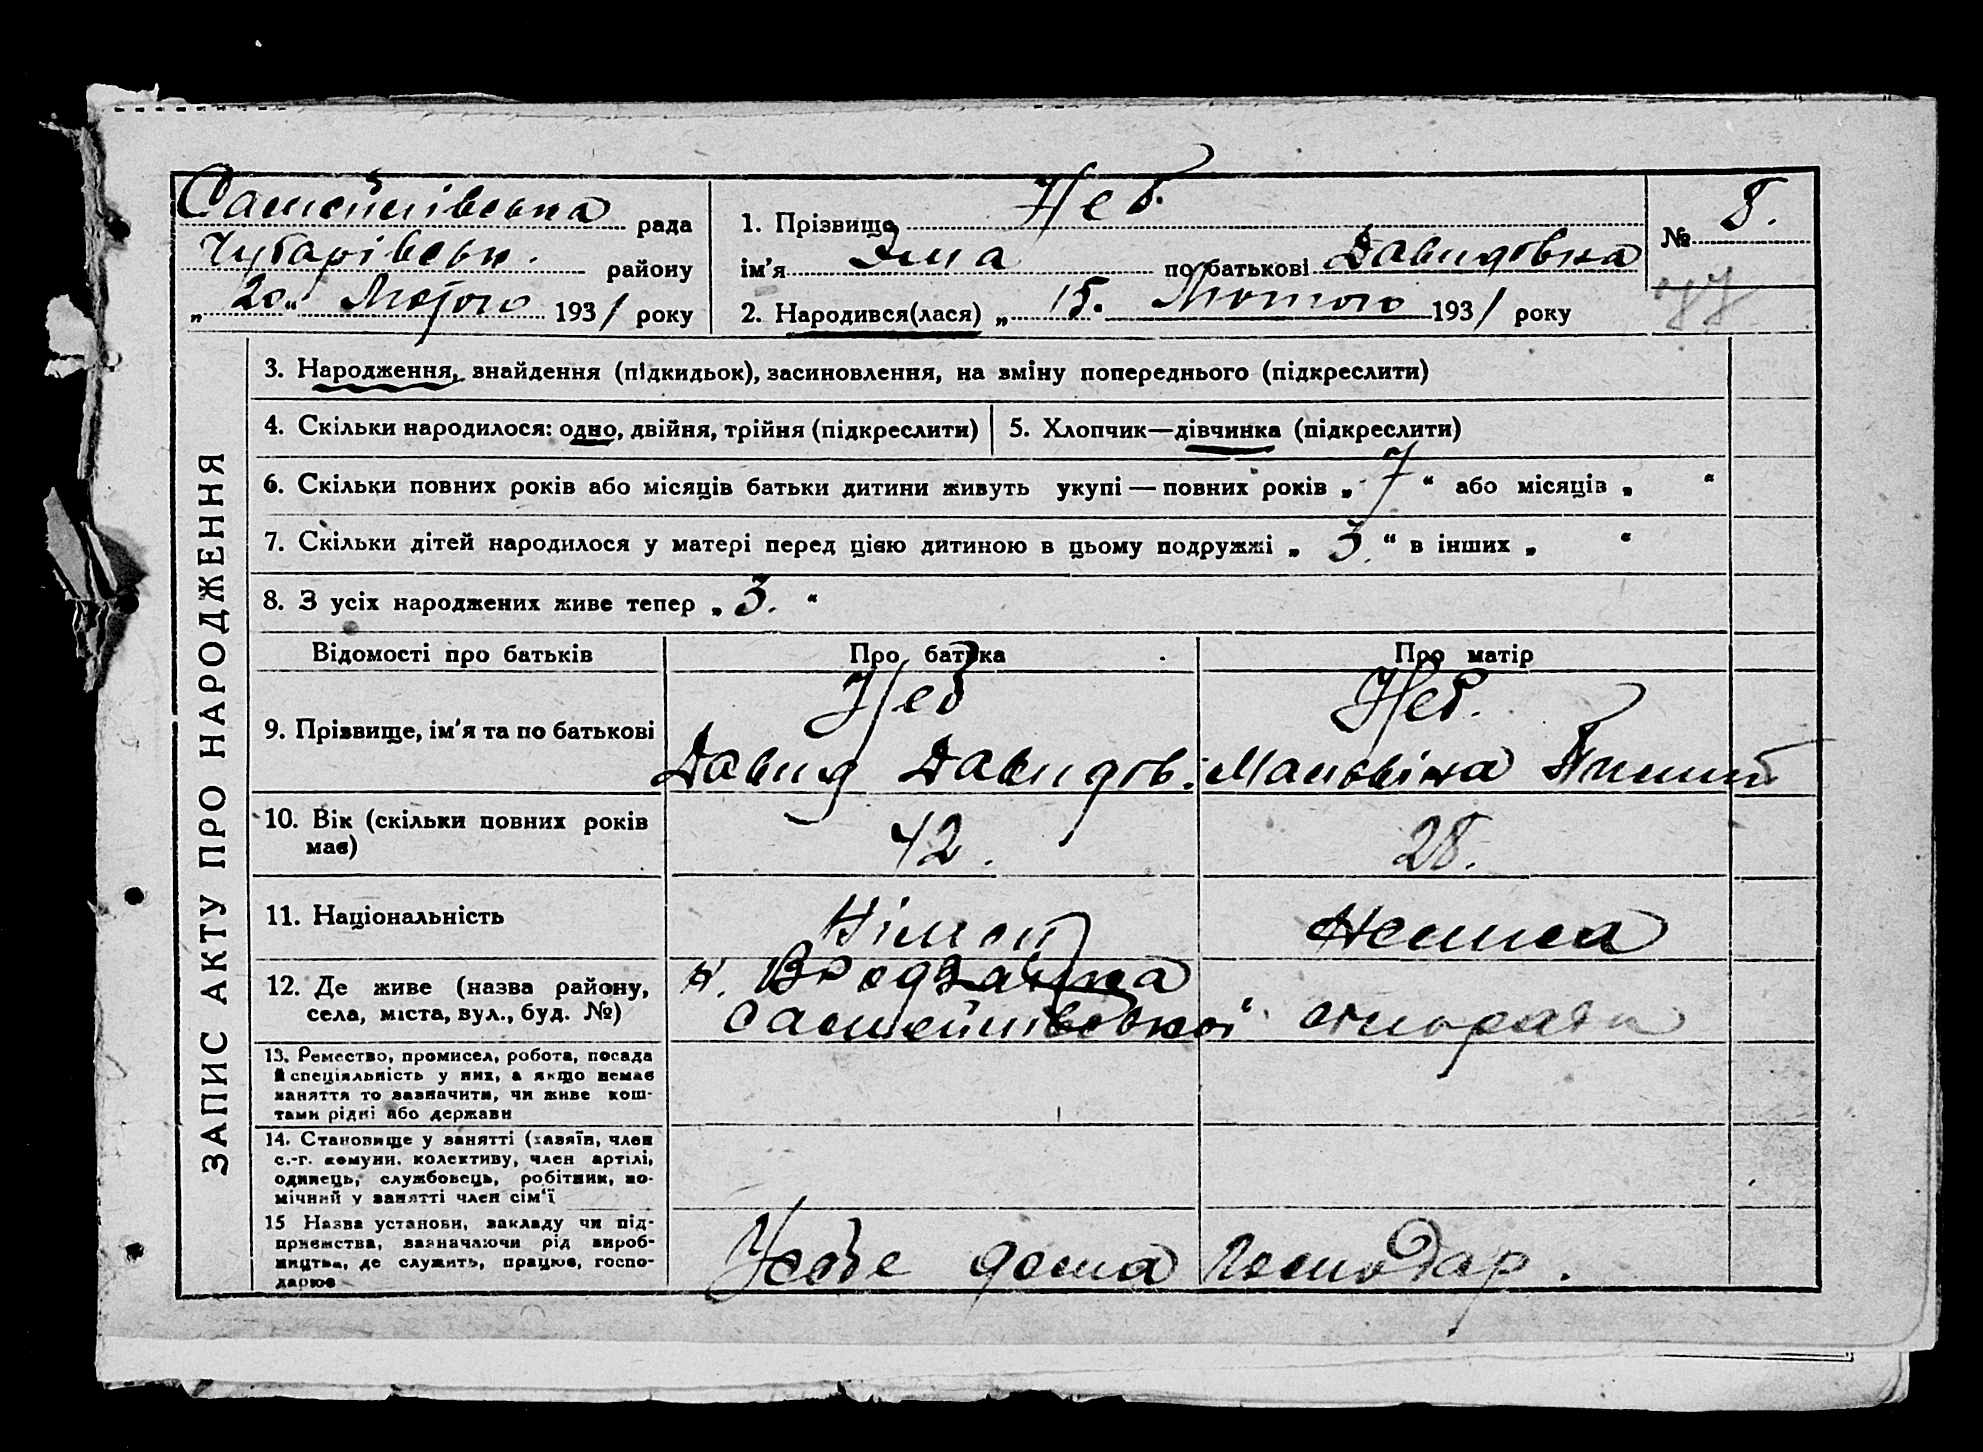 Самойлівська рада
Чубарівськ. району
„ 20 “ Лютого 1931 року
1. Прізвище Неб.
ім'я Эма по батькові Давидовна
2. Народився(лася) „ 15. Лютого 1931 року
№ 8.
77
ЗАПИС АКТУ ПРО НАРОДЖЕННЯ
3. Народження, знайдення (підкидьок), засиновлення, на зміну попереднього (підкреслити)
4. Скільки народилося: одно, двійня, трійня (підкреслити)
5. Хлопчик—дівчинка (підкреслити)
6. Скільки повних років або місяців батьки дитини живуть укупі — повних років „ 7 “ або місяців „ “
7. Скільки дітей народилося у матері перед цією дитиною в цьому подружжі „ 3. “ в інших „ “
8. З усіх народжених живе тепер „ 3. “
Відомості про батьків Про батька Про матір
9. Прізвище, ім'я та по батькові
Неб
Давид Давидов.
Неб.
Мальвіна
10. Вік (скільки повних років
має)
42.
28.
11. Національність
Німец
Немка
12. Де живе (назва району,
села, міста, вул., буд. №)
к.
13. Ремество, промисел, робота, посада
й спеціяльність у них, а якщо немає
заняття то зазначити, чи живе кош-
тами рідні або держави
14. Становище у занятті (хазяїн, член
с.-г. комуни, колективу, член артілі,
одинець, службовець, робітник, по-
мічний у занятті член сім'ї
15 Назва установи, закладу чи під-
приємства, зазначаючи рід вироб-
ництва, де служить, працює, госпо-
дарює
У себе дома господар.